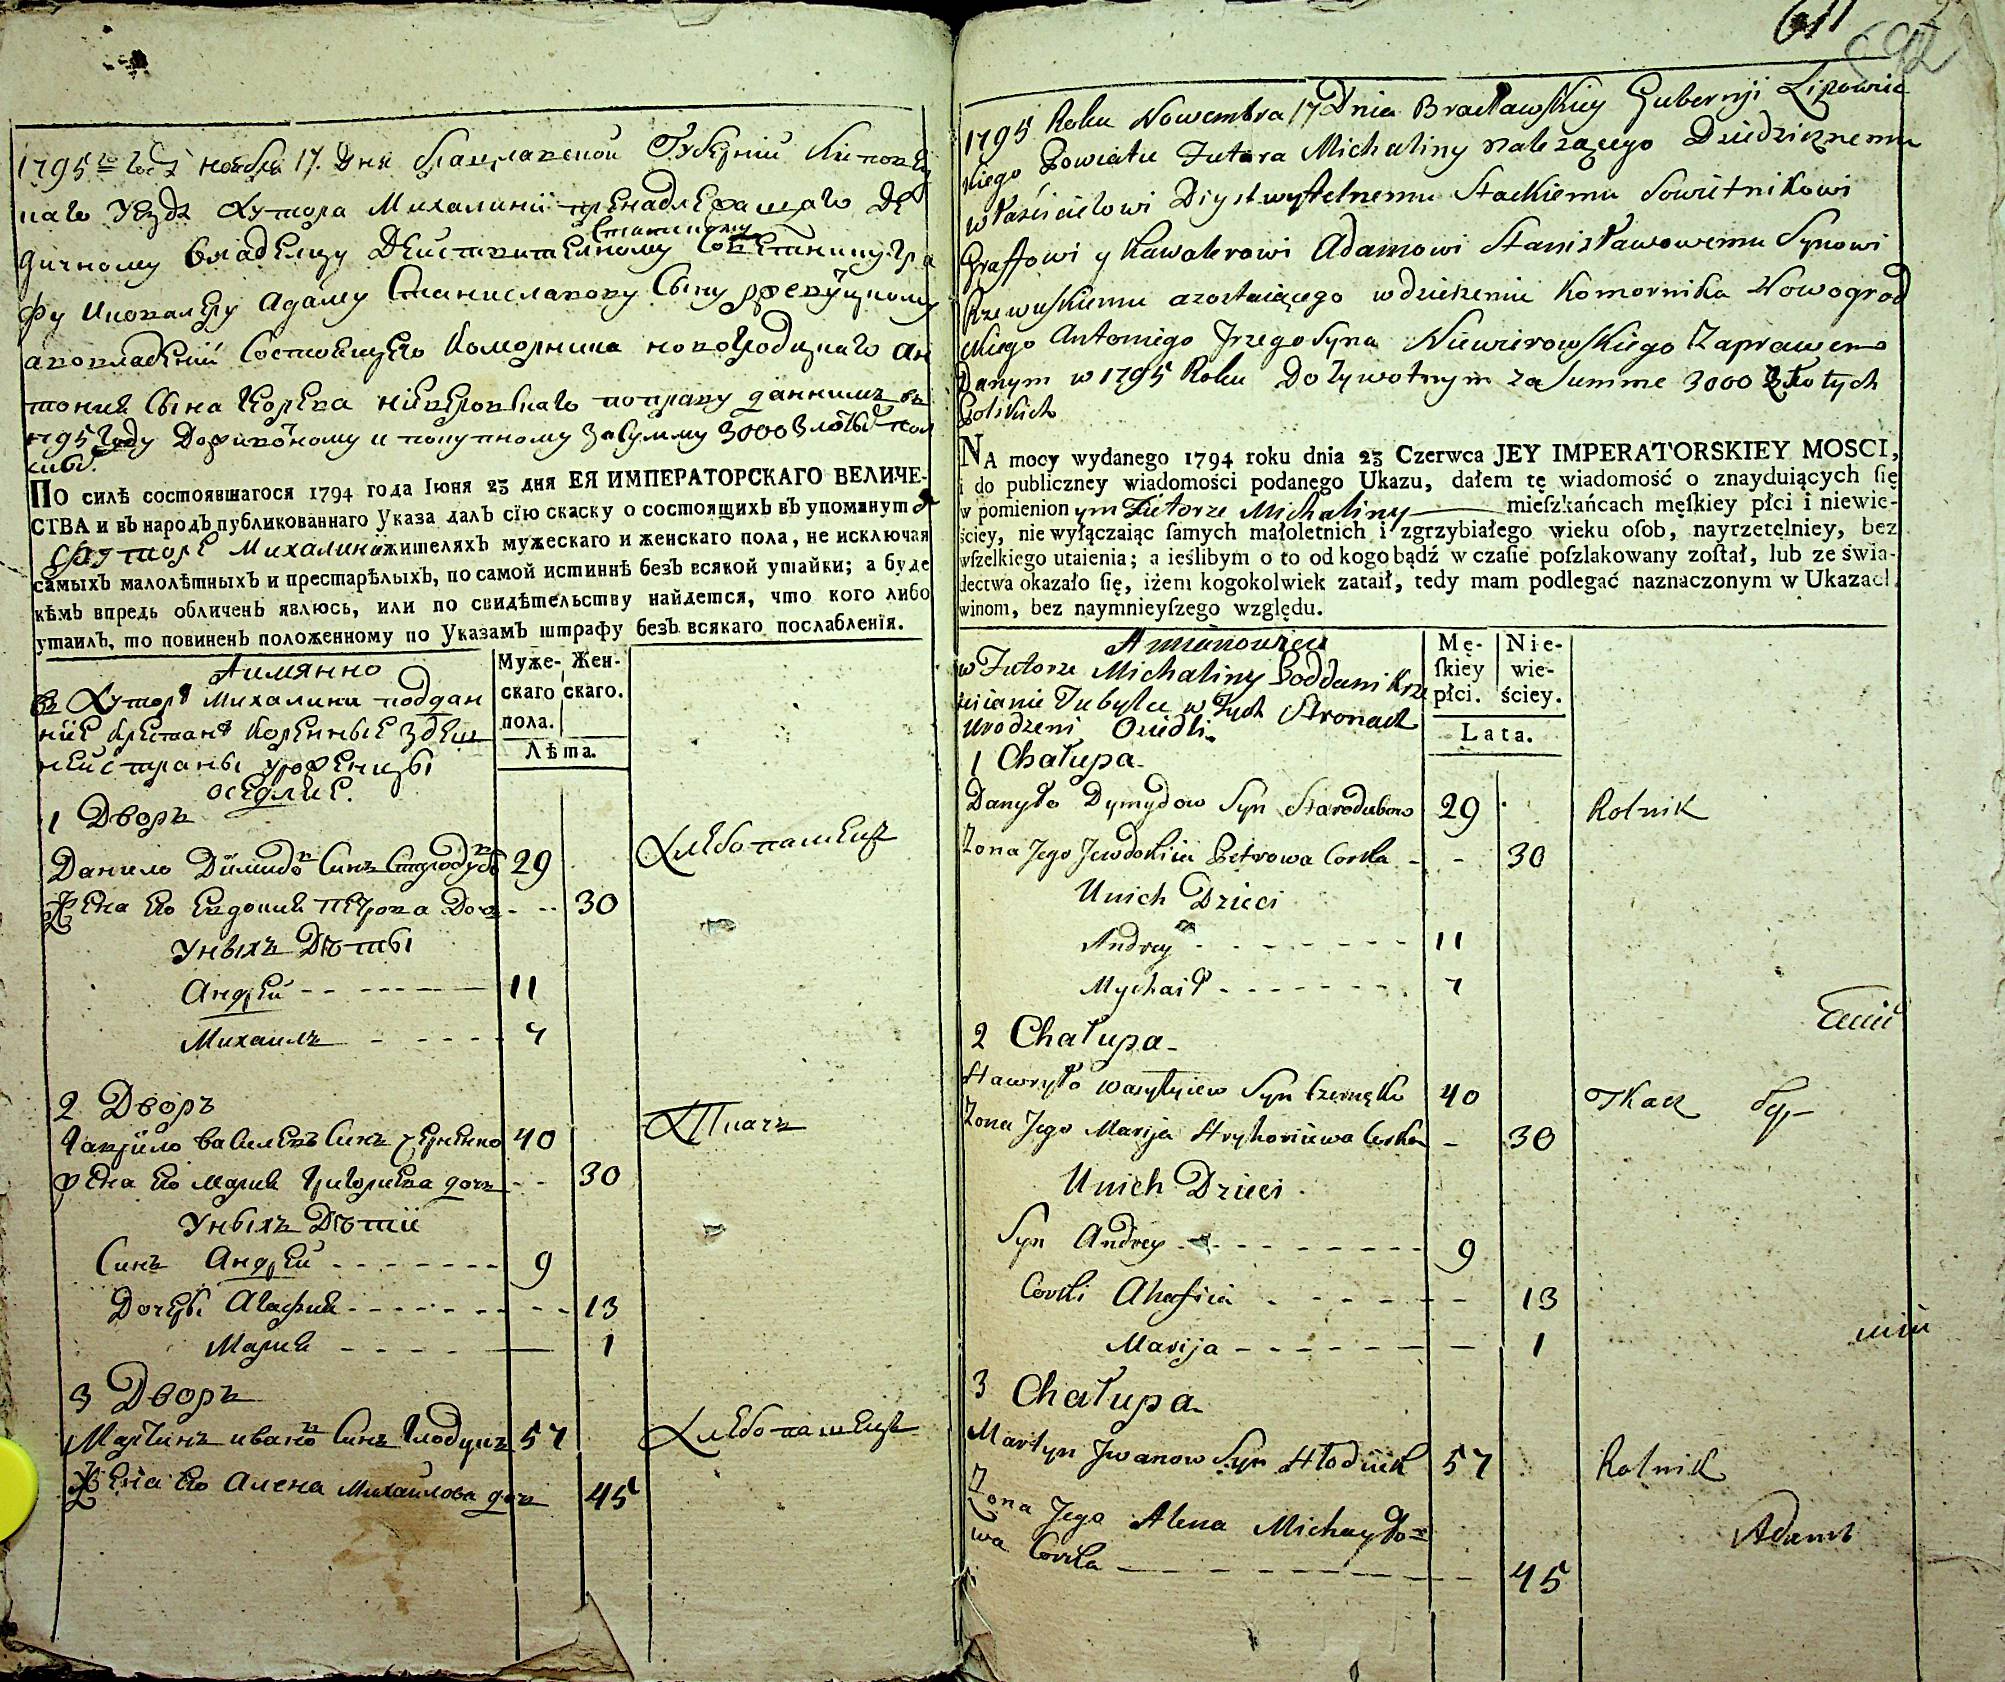 1795го года ноября 17. дня Брацлавской Губернии Липовец
каго уезда Хутора Михалини принадлежащаго де
дичному владелцу Действителному Статскому Советнику Гра
фу и кавалеру Адаму Станиславову Сыну ржевуцкому
а во владении Состоящего Коморника новогродицкаго Ан
тония Сына Юрева
1795 году 3000 злотых пол
ских.
ПО силѣ состоявшагося 1794 года Іюня 23 дня ЕЯ ИМПЕРАТОРСКАГО ВЕЛИЧЕ-
СТВА и въ народъ публикованнаго Указа далъ сію скаску о состоящихъ въ упомянутом
Хуторе Михалини жителяхъ мужескаго и женскаго пола, не исключая
самыхъ малолѣтныхъ и престарѣлыхъ, по самой истиннѣ безъ всякой утайки; а буде
кѣмъ впредь обличенъ явлюсь, или по свидѣтельству найдется, что кого либо
утаилъ, то повиненъ положенному по Указамъ штрафу безъ всякаго послабленія.
Аимянно
Муже- Жен-
скаго скаго.
пола.
Лѣта.
въ Хуторе Михалини поддан
ние крестяне Коренные здеш
ней страны уроженцы
оседлие.
1 Дворъ
Данило Димидовъ Синъ Стародубъ 29 Хлебопашецъ
Жена его Евдокия Петрова Дочь - - 30
У ныхъ Дѣты
Андрей 11
Михаилъ 7
2 Дворъ
Гаврило Василевъ Синъ Черненко 40 Ткачъ
Жена его Мария Григорева дочь - - 30
У ныхъ Дѣти
Синъ Андрей 9
Дочеры Агафия 13
Мария 1
3 Дворъ
Мартинъ Ивановъ Синъ Глодукъ 57 Хлебопашецъ
Жена его Алена Михайлова дочь 45
611
692
1795 Roku Nowembra 17 Dnia Bracławskiey Gubernji Lipowiec
kiego Powiatu Futora Michaliny należącego Dziedzicznemu
właścicielowi Diystwytelnemu Stackiemu Sowietnikowi
Graffowi y Kawalerowi Adamowi Stanisławowemu Synowi
Rzewuskiemu a zostaiącego w dzierzeniu Komornika Nowogrod
zkiego Antoniego Jrzego Syna Niewierowskiego Za prawem
Danym w 1795 Roku Dożywotnym za Summe 3000 Złotych
Polskich
NA mocy wydanego 1794 roku dnia 23 Czerwca JEY IMPERATORSKIEY MOSCI,
i do publiczney wiadomości podanego Ukazu, dałem tę wiadomość o znayduiących ſię
w pomienionym Futorze Michaliny mieſzkańcach męſkiey płci i niewie-
ściey, nie wyłączaiąc ſamych małoletnich i zgrzybiałego wieku oſob, nayrzetelniey, bez
wſzelkiego utaienia; a ieślibym o to od kogo bądź w czaſie poſzlakowany zoſtał, lub ze świa-
dectwa okazało ſię, iżem kogokolwiek zataił, tedy mam podlegać naznaczonym w Ukazach
winom, bez naymnieyſzego względu.
A mianowicie
Mę- Nie-
ſkiey wie-
płci. ściey.
Lata.
w Futorze Michaliny Poddani Krze
ścianie Tubylce w Tych Stronach
Urodzeni Osiedli
1 Chałupa
Danyło Dymydow Syn Starodubow 29 Rolnik
Zona Jego Jewdokiia Petrowa Corka - - 30
U nich Dzieci
Andrey 11
Mychaił 7
2 Chałupa
Hawryło Wasylyiew Syn Czernęko 40 Tkacz
Zona Jego Marija Hryhoriiewa Corka - 30
U nich Dzieci
Syn Andrey 9
Corki Ahafiia 13
Marija 1
3 Chałupa
Martyn Jwanow Syn Hłodiuk 57 Rolnik
Zona Jego Alena Michayło=
wa Corka 45
Adamъ